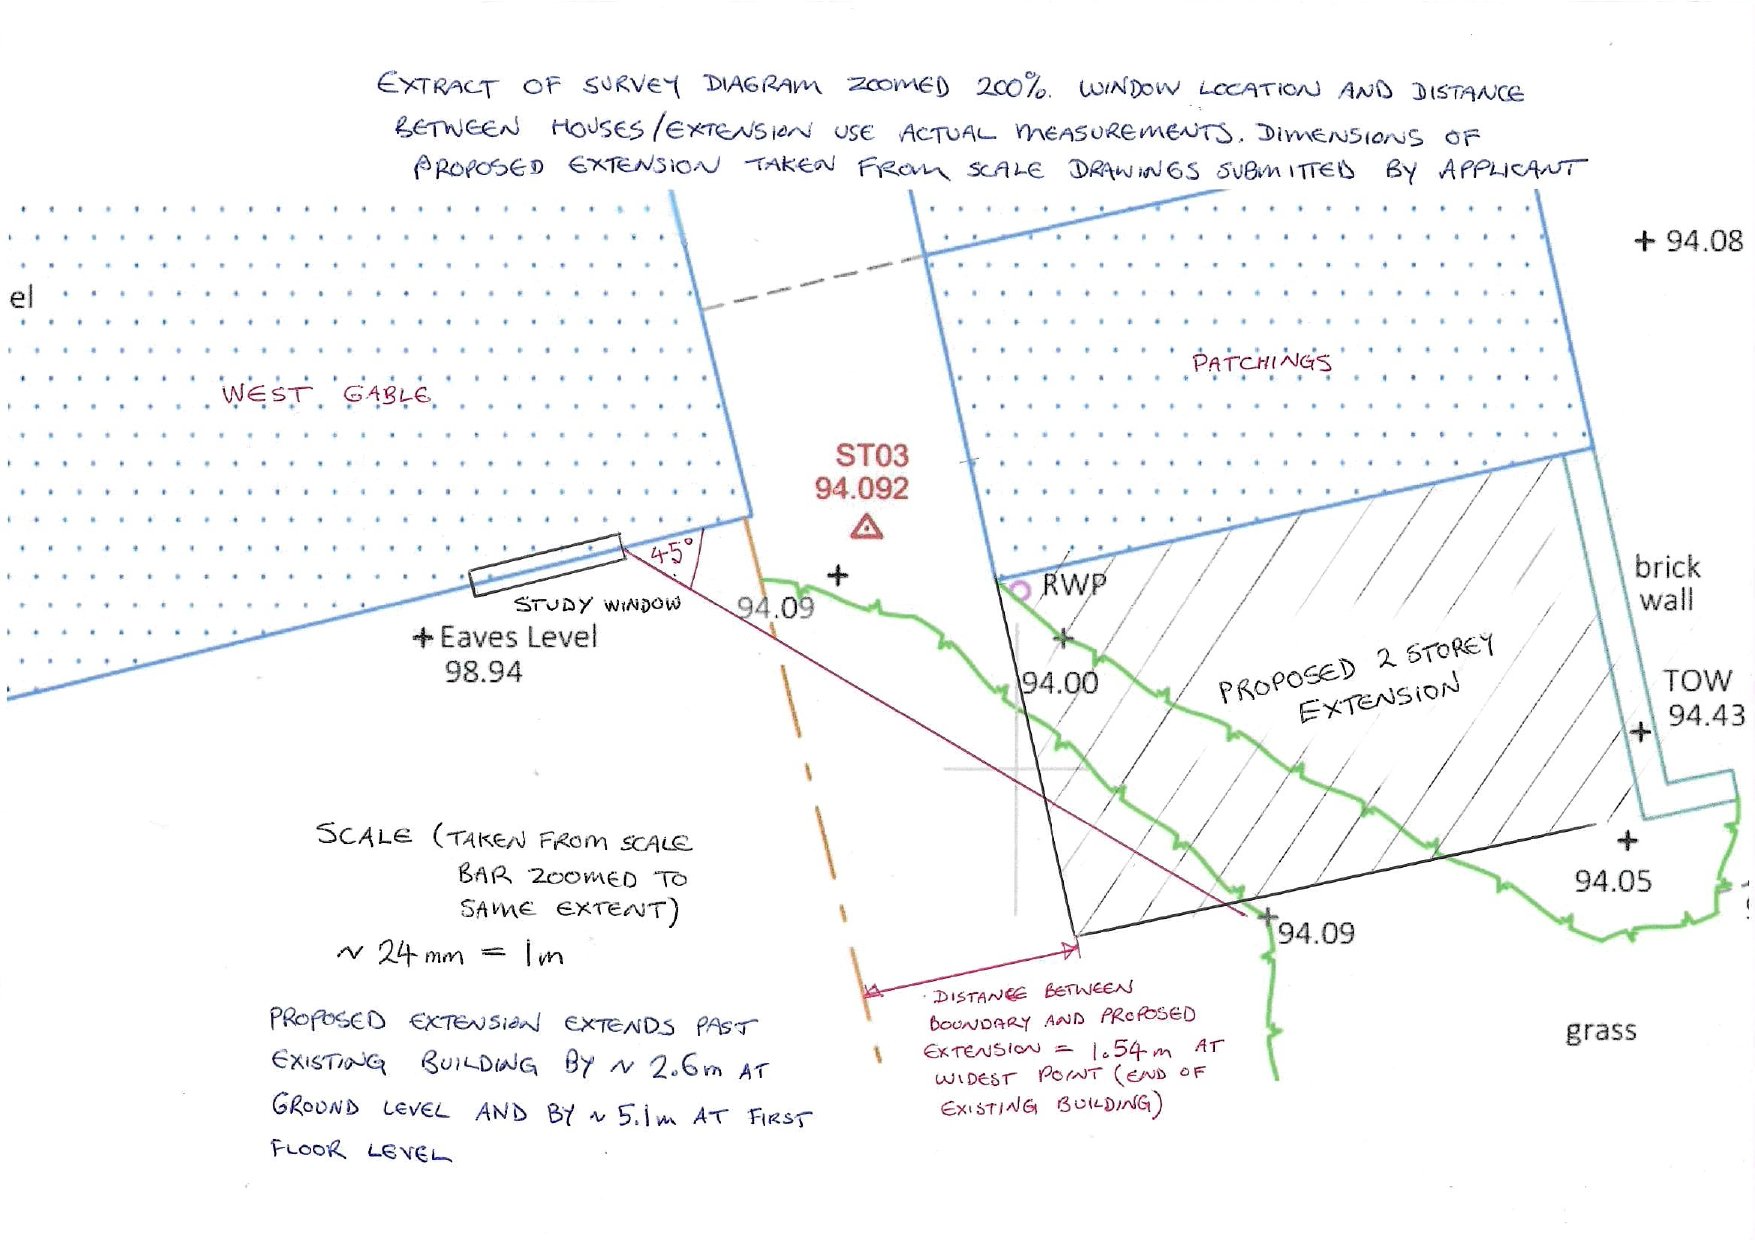 EXTRACT OF SURVEY DIAGRAM ZOOMED 200%. WINDOW LOCATION AND DISTANCE
BETWEEN HOUSES/EXTENSION USE ACTUAL MEASUREMENTS. DIMENSIONS OF
PROPOSED EXTENSION TAKEN FROM SCALE DRAWINGS SUBMITTED BY APPLICANT
+ 94.08
el
PATCHINGS
WEST GABLE
ST03
94.092
45°
STUDY WINDOW
94.09
RWP
brick
wall
+ Eaves Level
98.94
94.00
PROPOSED 2 STOREY
EXTENSION
TOW
94.43
SCALE (TAKEN FROM SCALE
BAR ZOOMED TO
SAME EXTENT)
~ 24mm = 1m
94.05
94.09
DISTANCE BETWEEN
BOUNDARY AND PROPOSED
EXTENSION = 1.54m AT
WIDEST POINT (END OF
EXISTING BUILDING)
grass
PROPOSED EXTENSION EXTENDS PAST
EXISTING BUILDING BY ~ 2.6m AT
GROUND LEVEL AND BY ~ 5.1m AT FIRST
FLOOR LEVEL